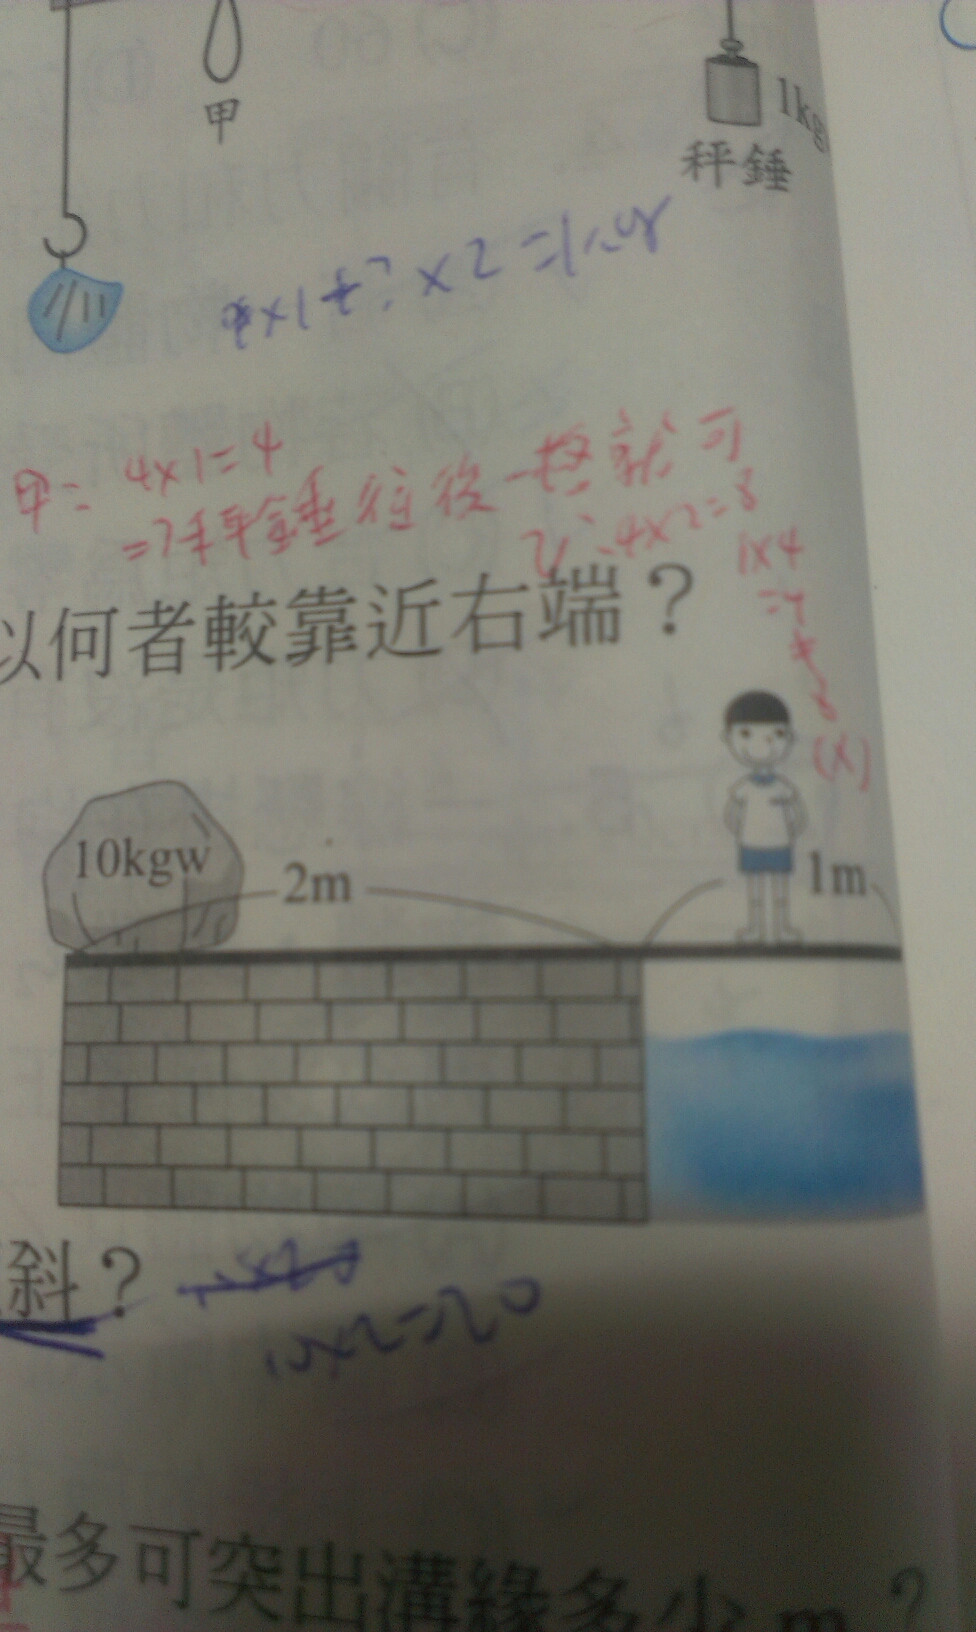 甲
1kg
秤錘
甲: 4×1=4
=>秤錘往後一些就可
乙:4×2=8
1×4
=4
≠
8
(×)
何者較靠近右端？
10kgw
2m
1m
斜？
10×2=20
最多可突出溝緣多少m？